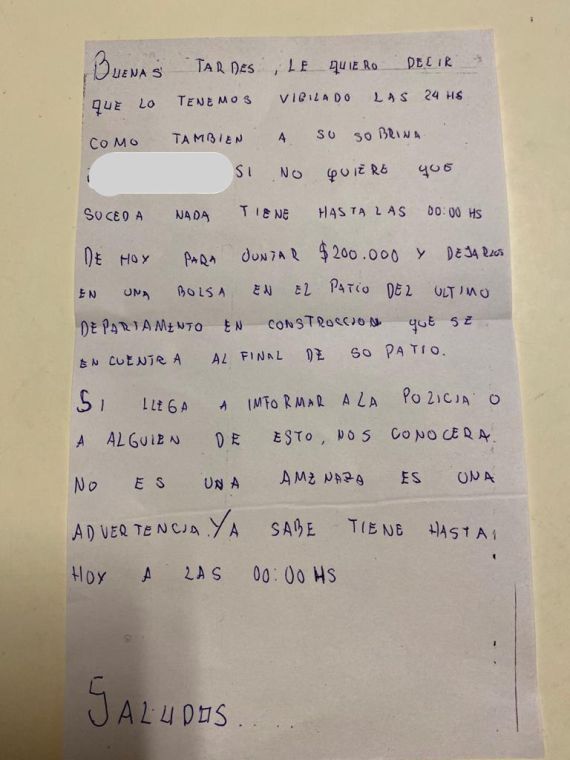 BUENAS TARDES, LE QUIERO DECIR
QUE LO TENEMOS VIGILADO LAS 24 HS
COMO TAMBIEN A SU SOBRINA
SI NO QUIERE QUE
SUCEDA NADA TIENE HASTA LAS 00:00 HS
DE HOY PARA JUNTAR $200.000 Y DEJARLOS
EN UNA BOLSA EN EL PATIO DEL ULTIMO
DEPARTAMENTO EN CONSTRUCCION QUE SE
ENCUENTRA AL FINAL DE SO PATIO.
SI LLEGA A INFORMAR A LA POLICIA O
A ALGUIEN DE ESTO, NOS CONOCERA.
NO ES UNA AMENAZA ES UNA
ADVERTENCIA. YA SABE TIENE HASTA
HOY A LAS 00:00 HS
SALUDOS.....